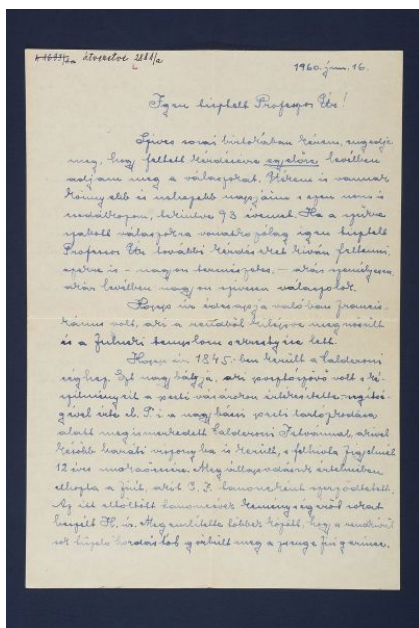 átvezetve
1960. jún. 16.
Igen tisztelt Professor Úr!
Szives sorai birtokában kérem, engedje
meg, hogy feltett kérdéseire egyelőre levélben
adjam meg a válaszokat. Nekem is vannak
könnyebb és nehezebb napjaim s ezen nem is
csodálkozom, tekintve 93 évemet. Ha a szűkre
szabott válaszokra vonatkozólag igen tisztelt
Professor Úr további kérdéseket kiván feltenni,
ezekre is - nagyon természetes, - akár személyesen,
akár levélben nagyon szivesen válaszolok.
Hopp úr édesapja valóban francis-
kánus volt, aki a rendből kilépve megnősült
és a fulneki templom sekrestyése lett.
Hopp úr 1845-ben került a Calderoni
céghez. Ezt nagybátyja, aki posztószövő volt s ké-
szitményeit a pesti vásárokon értékesitette
érte el. T. i. a nagybácsi pesti tartózkodása
alatt megismerkedett Calderoni Istvánnal, akivel
később baráti viszonyba is került, s felhivta figyelmét
12 éves unokaöccsére. Megállapodásuk értelmében
elhozta a fiút, akit C. I. tanoncként szerződtetett.
Az itt eltöltött tanoncévek keménységéről sokat
beszélt H. úr. Megemlitette többek között, hogy a rendkivül
sok görbült meg a gerince.